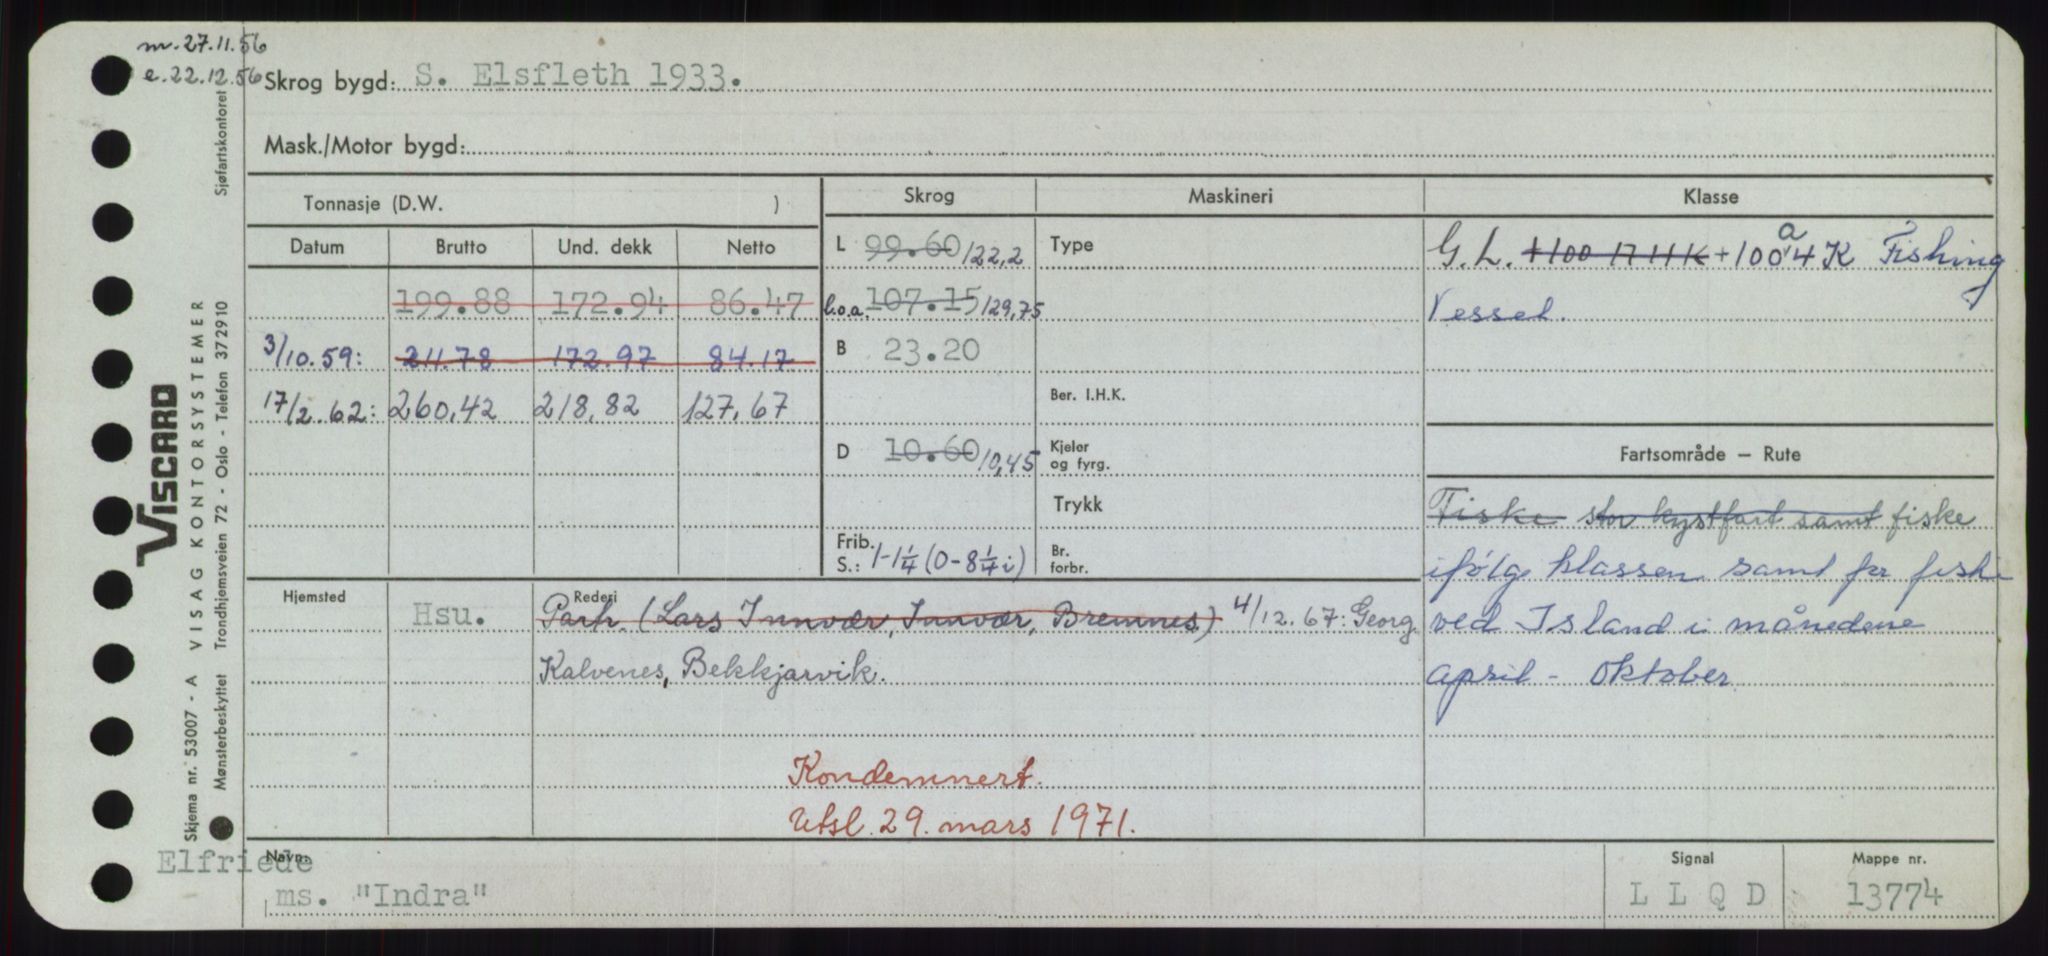 m. 27.11.56
e. 22.12.56
Skrog bygd: S. Elsfleth 1933.
Mask./Motor bygd:
Tonnasje (D.W. )
Skrog
Maskineri
Klasse
Datum Brutto Und. dekk Netto
199.88 172.94 86.47
3/10.59: 211.78 172.97 84.17
17/2.62: 260,42 218,82 127,67
L 99.60/122,2
l.o.a. 107.15/129,75
B 23.20
D 10.60/10,45
Frib.
S.: 1-1¼ (0-8¼ i)
Type
Ber. I.H.K.
Kjeler
og fyrg.
Trykk
Br.
forbr.
G.L. +100 +100 a 4 K Fishing
Vessel.
Fartsområde – Rute
Fiske stor kystfart samt fiske
ifølge klassen samt for fiske
ved Island i månedene
april - oktober
Hjemsted Hsu.
Rederi
Partr. (Lars Innvær, Innvær, Bremnes) 4/12.67: Georg
Kalvenes, Bekkjarvik.
Kondemnert.
Utsl. 29. mars 1971.
Elfriede
Navn:
ms. "Indra"
Signal
L L Q D
Mappe nr.
13774
VISCARD
Skjema nr. 53007 - A VISAG KONTORSYSTEMER
Mønsterbeskyttet Trondhjemsveien 72 - Oslo - Telefon 372910 Sjøfartskontoret